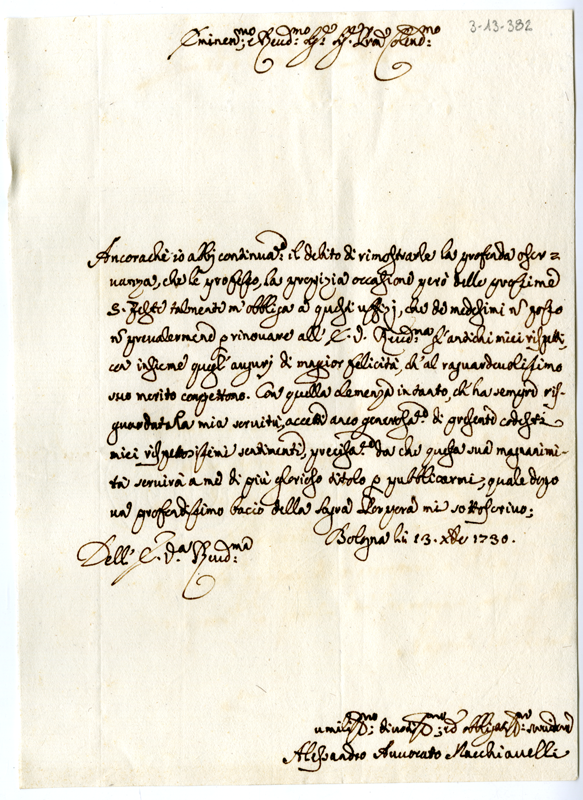 3-13-382
Eminen.mo e Reud.mo Sig.r Sig.r Pron Colend.mo
Ancorachè io abbj continua.o il debito di rimostrarle la profonda osser-
vanza, che le professo, la propizia occasione però delle prossime
S. Feste talmente m'obbliga a questi uffizj, che de medesimi ñ posso
ñ prevalermene p rinouare all' E. V. Reud.ma gl'antichi miei rispetti,
con insieme quegl'augurj di maggior felicità, ch'al raguardeuolissimo
suo merito competono. Con quella clemenza intanto, ch'ha sempre ris-
guardata la mia seruitù, accetti anco generosa.te di presente codesti
miei rispettosissimi sentimenti, precisa.te da che questa sua magnanimi-
tà seruirà a me di più glorioso titolo p pubblicarmi, quale dopo
un profondissimo bacio della Sagra Porpora mi sottoscriuo;
Bologna li 13. Xbre 1730.
Dell' E. V.a Reud.ma
umiliss.mo: diuotiss.mo; ed obbligatiss.mo: seruidore
Alessandro Auuocato Macchiauelli